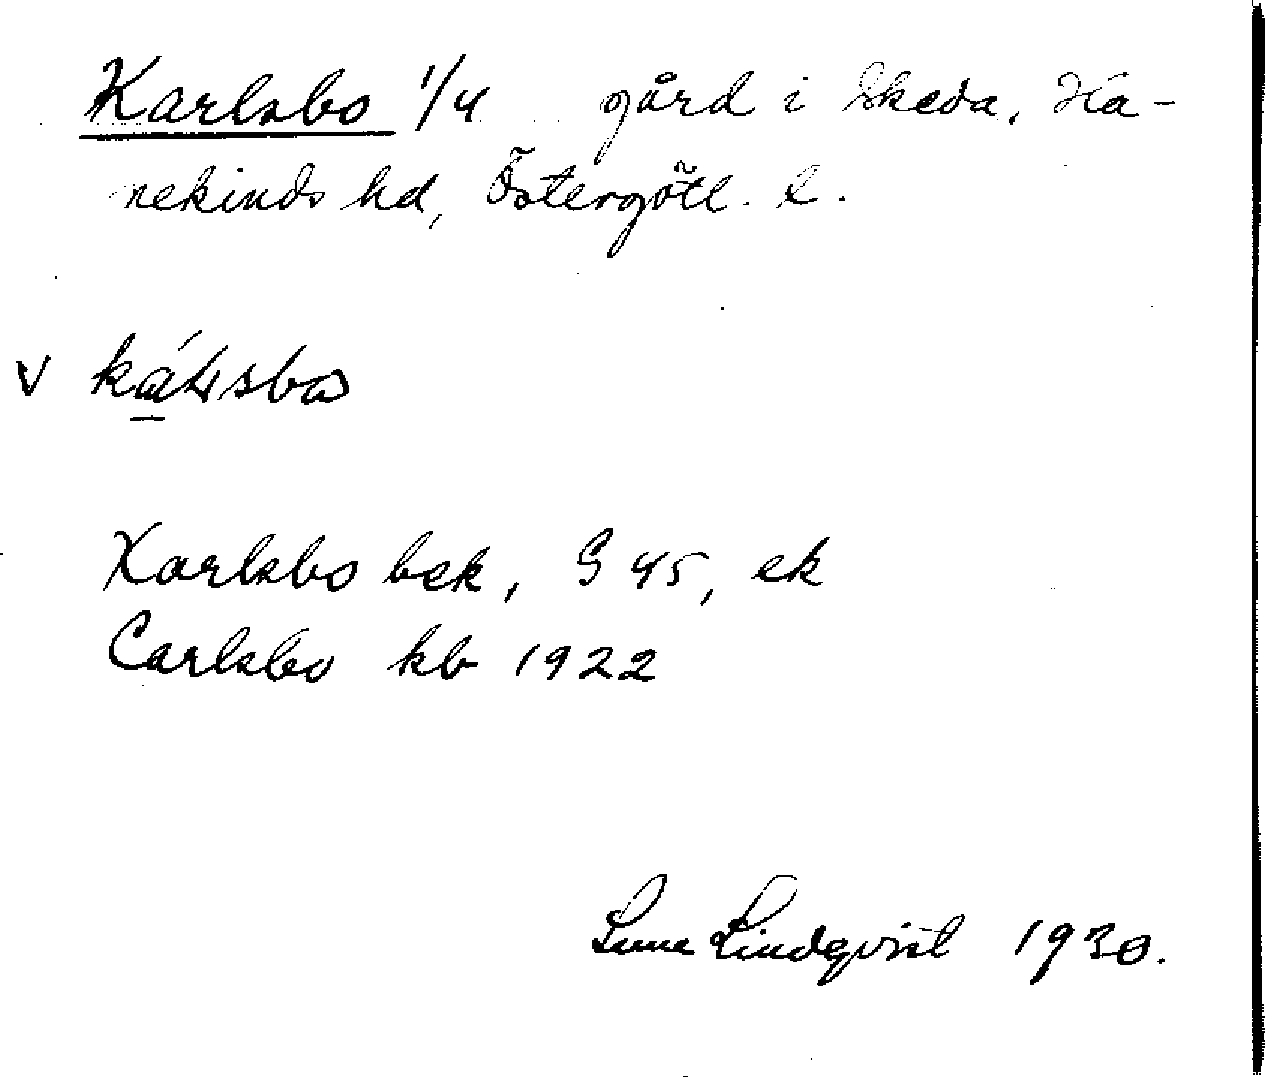 Karlsbo 1/4 gård i Skeda, Ha-
nekinds hd, Östergötl. l.
v
Karlsbo bek, G 45, ek
Carlsbo kb 1922
Sune Lindqvist 1930.